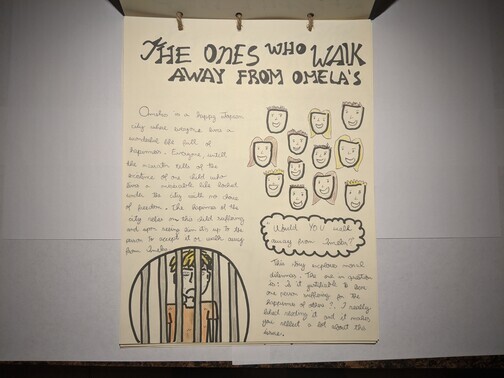 THE ONES WHO WALK
AWAY FROM OMELA'S
Omelas is a happy
city where everyone lives a
wonderful life full of
happiness. Everyone, untill
the narrator tells of the
existence of one child who
lives a miserable life locked
under the city with no
of freedom. The happiness of the
city relies on this child suffering
and upon seeing him it's up to the
person to accept it or walk away
from Omelas.
Would YOU walk
away from Omelas?
This story explores moral
dilemmas. The one in question
is: Is it justifiable to have
one person suffering for the
happiness of others?. I really
liked reading it and it makes
you reflect a lot about this